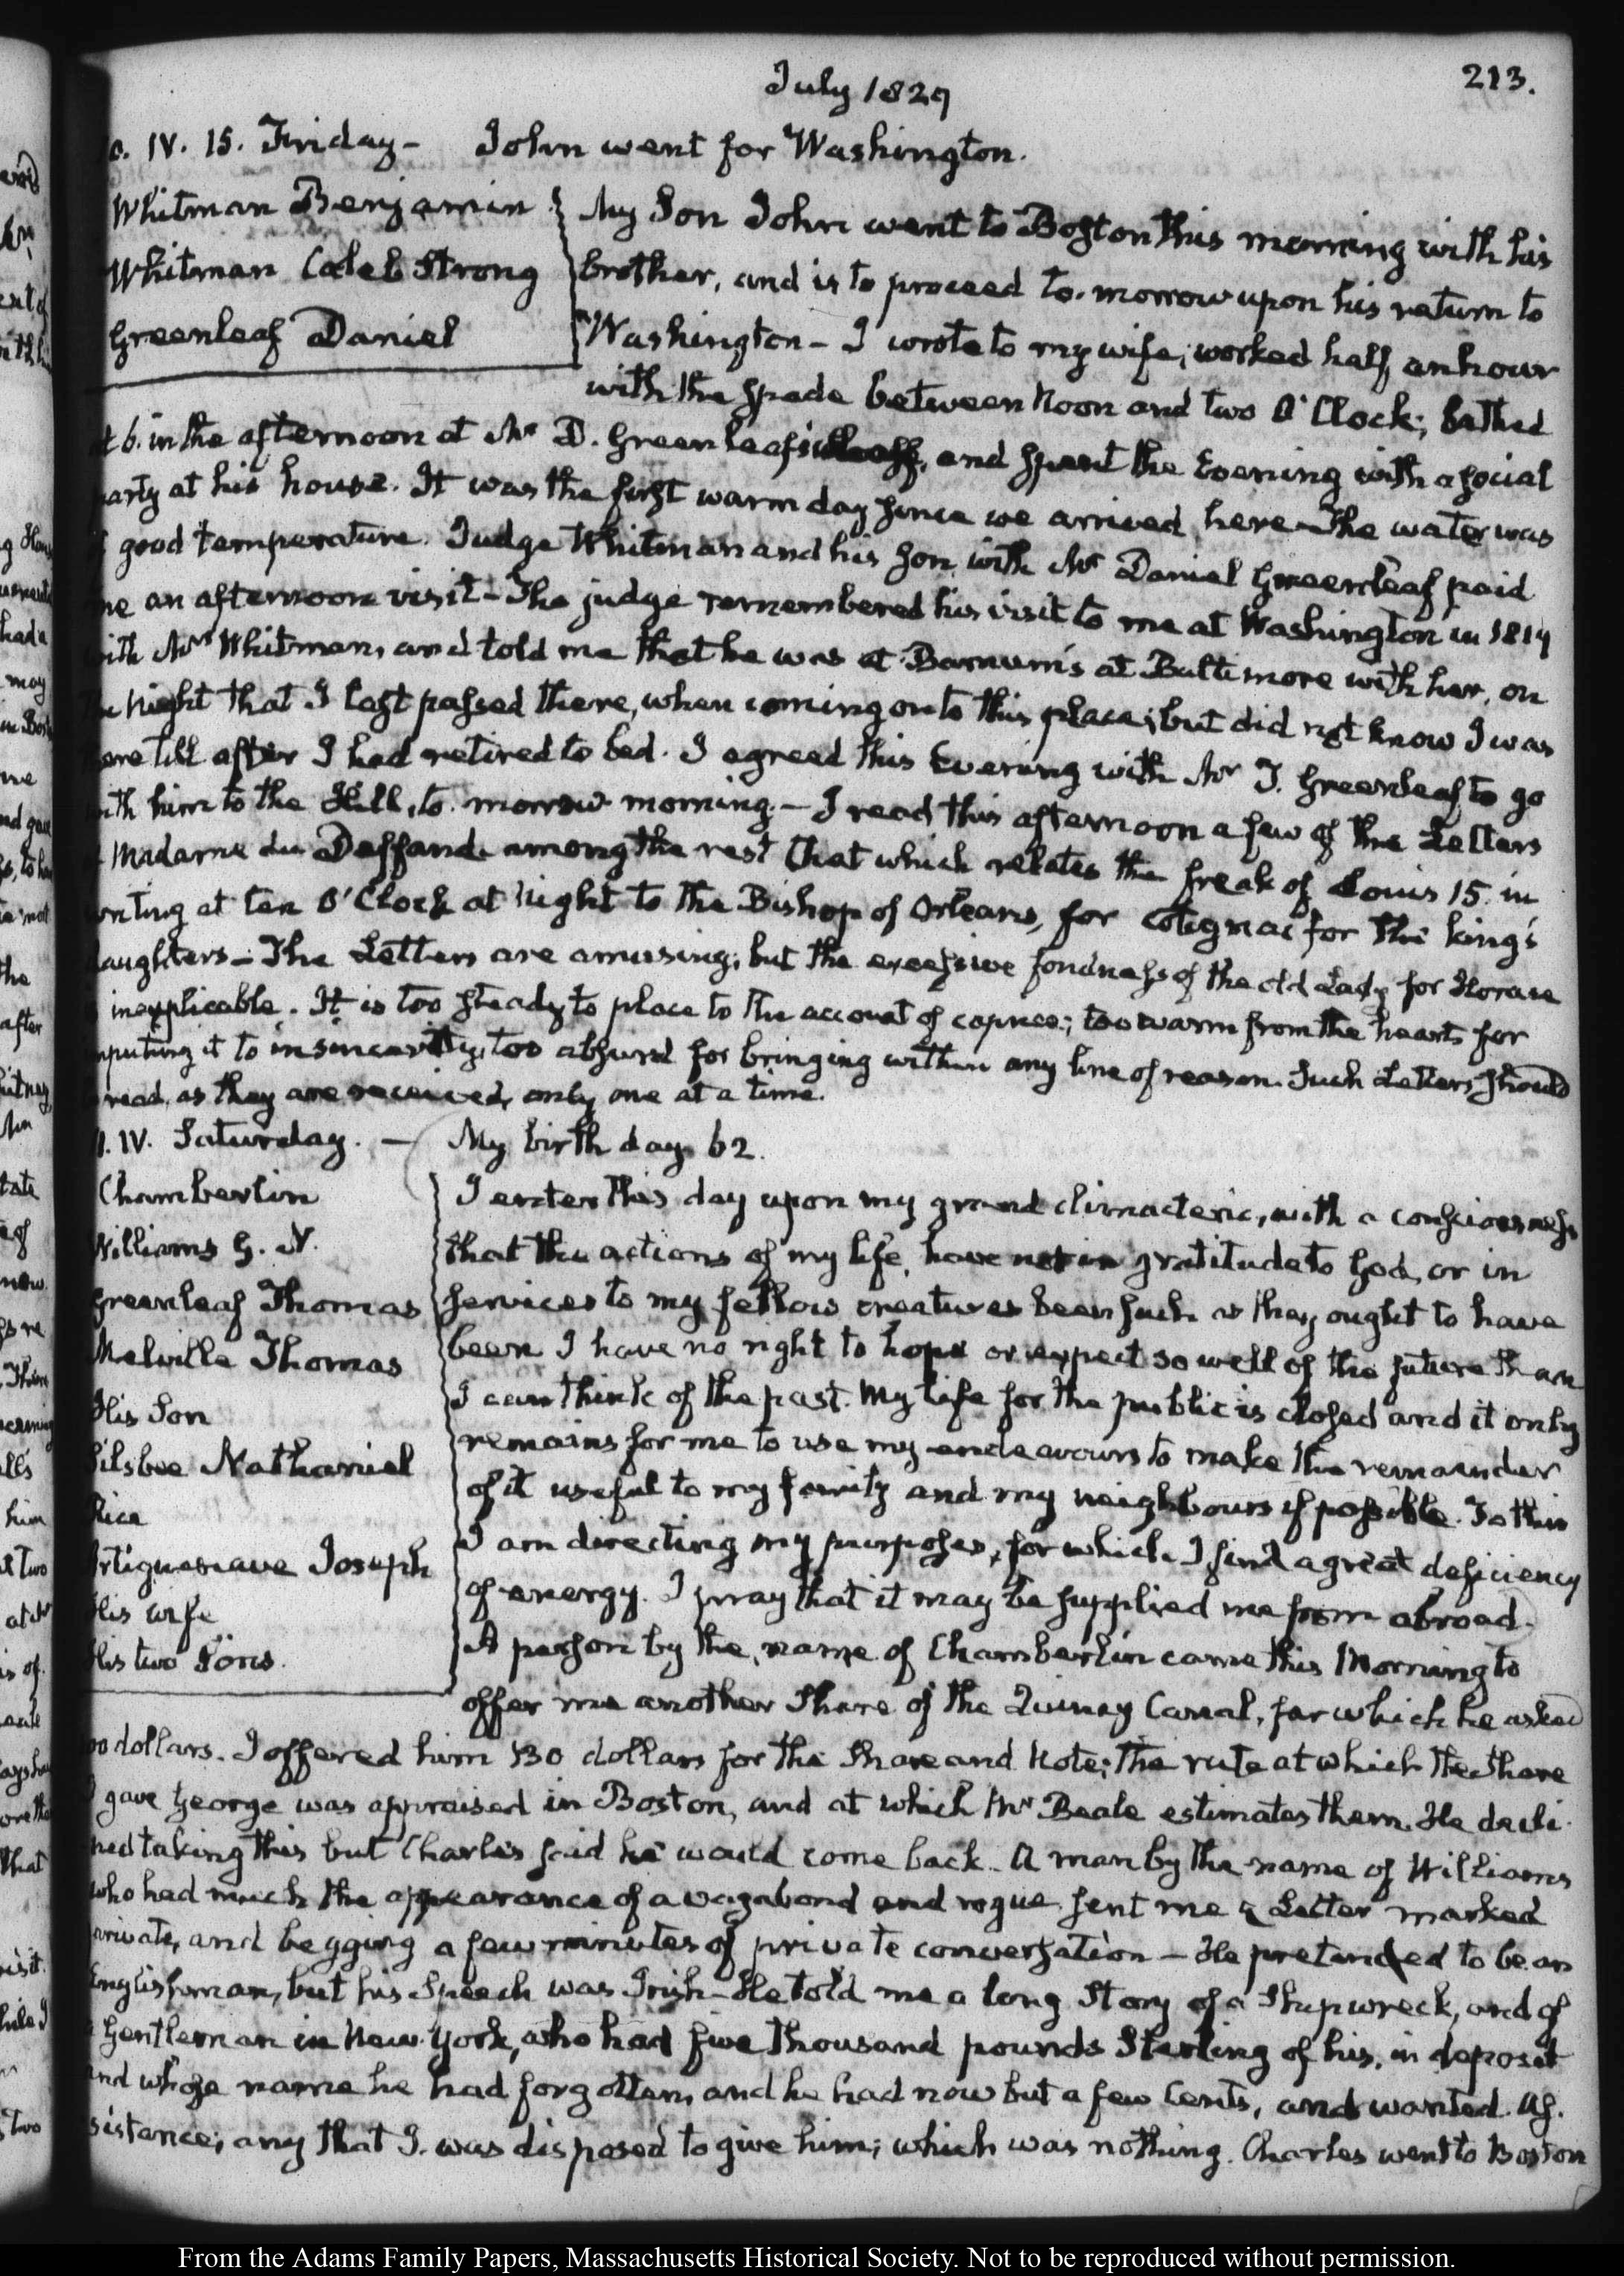 213.
July 1829
10. IV. 15. Friday – John went for Washington.
Whitman Benjamin
Whitman Caleb Strong
Greenleaf Daniel
My Son John went to Boston this morning with his
brother, and is to proceed to-morrow upon his return to
Washington – I wrote to my wife; worked half an hour
with the Spade between Noon and two O'Clock; bathed
at 6. in the afternoon at Mr D. Greenleaf's and spent the Evening with a social
party at his house. It was the first warm day since we arrived here – The water was
good temperature. Judge Whitman and his son with Mr Daniel Greenleaf paid
me an afternoon visit – The judge remembered his visit to me at Washington in 1819
with Mrs Whitman, and told me that he was at Barnum's at Baltimore with her, on
the Night that I last passed there, when coming on to this place; but did not know I was
there till after I had retired to bed. I agreed this Evening with Mr T. Greenleaf to go
with him to the Hill, to-morrow morning. – I read this afternoon a few of the Letters
Madame du Deffand among the rest that which relates the freak of Louis 15. in
writing at ten O'Clock at Night to the Bishop of Orleans, for Cotignac for the king's
daughters – The Letters are amusing; but the excessive fondness of the old Lady for Horace
inexplicable. It is too steady to place to the account of caprice; too warm from the heart for
imputing it to insincerity; too absurd for bringing within any line of reason. Such Letters should
read, as they are received, only one at a time.
11. IV. Saturday. – My birth day. 62.
Chamberlin
Williams G. N.
Greenleaf Thomas
Melville Thomas
His Son
Silsbee Nathaniel
Rice
Artiguenave Joseph
His wife
His two Sons.
I enter this day upon my grand climacteric, with a consciousness
that the actions of my life, have not in gratitude to God, or in
services to my fellow creatures been such as they ought to have
been. I have no right to hope or expect so well of the future than
I can think of the past. My life for the public is closed and it only
remains for me to use my endeavours to make the remainder
of it useful to my family and my neighbours if possible. To this
I am directing my purposes, for which I find a great deficiency
of energy. I pray that it may be supplied me from abroad.
A person by the name of Chamberlin came this Morning to
offer me another Share of the Quincy Canal, for which he asked
dollars. I offered him 130 dollars for the Share and Note; the rate at which the Share
I gave George was appraised in Boston, and at which Mr Beale estimates them. He decli-
ned taking this but Charles said he would come back. A man by the name of Williams
who had much the appearance of a vagabond and rogue sent me a Letter marked
private, and begging a few minutes of private conversation – He pretended to be an
Englishman, but his Speech was Irish – He told me a long Story of a Shipwreck, and of
a Gentleman in New York, who had five thousand pounds Sterling of his, in deposit
and whose name he had forgotten, and he had now but a few Cents, and wanted As-
sistance; any that I was disposed to give him; which was nothing. Charles went to Boston
From the Adams Family Papers, Massachusetts Historical Society. Not to be reproduced without permission.